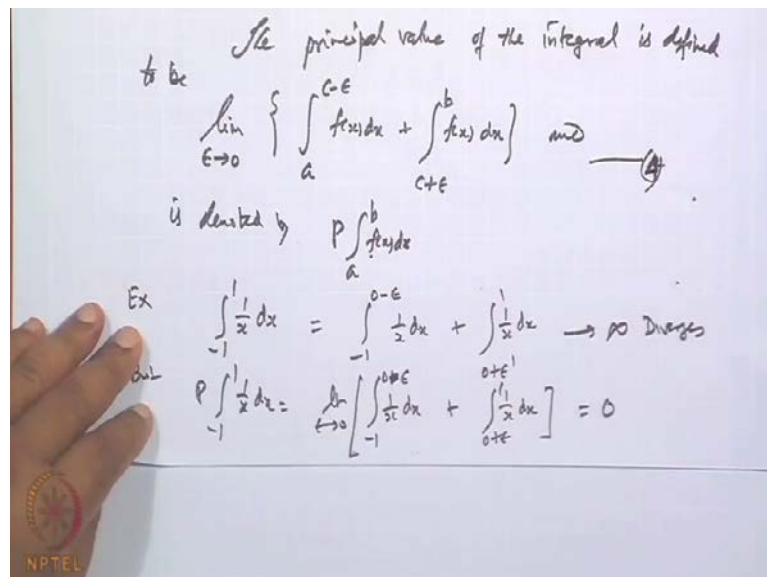 The principal value of the integral is defined
to be
lim ε→0 { ∫_a^{c-ε} f(x) dx + ∫_{c+ε}^b f(x) dx } and —— (4)
is denoted by P ∫_a^b f(x) dx
Ex ∫_{-1}^1 1/x dx = ∫_{-1}^{0-ε} 1/x dx + ∫_{0+ε'}^1 1/x dx → ∞ Diverges
But P ∫_{-1}^1 1/x dx = lim ε→0 [ ∫_{-1}^{0-ε} 1/x dx + ∫_{0+ε}^1 1/x dx ] = 0
NPTEL